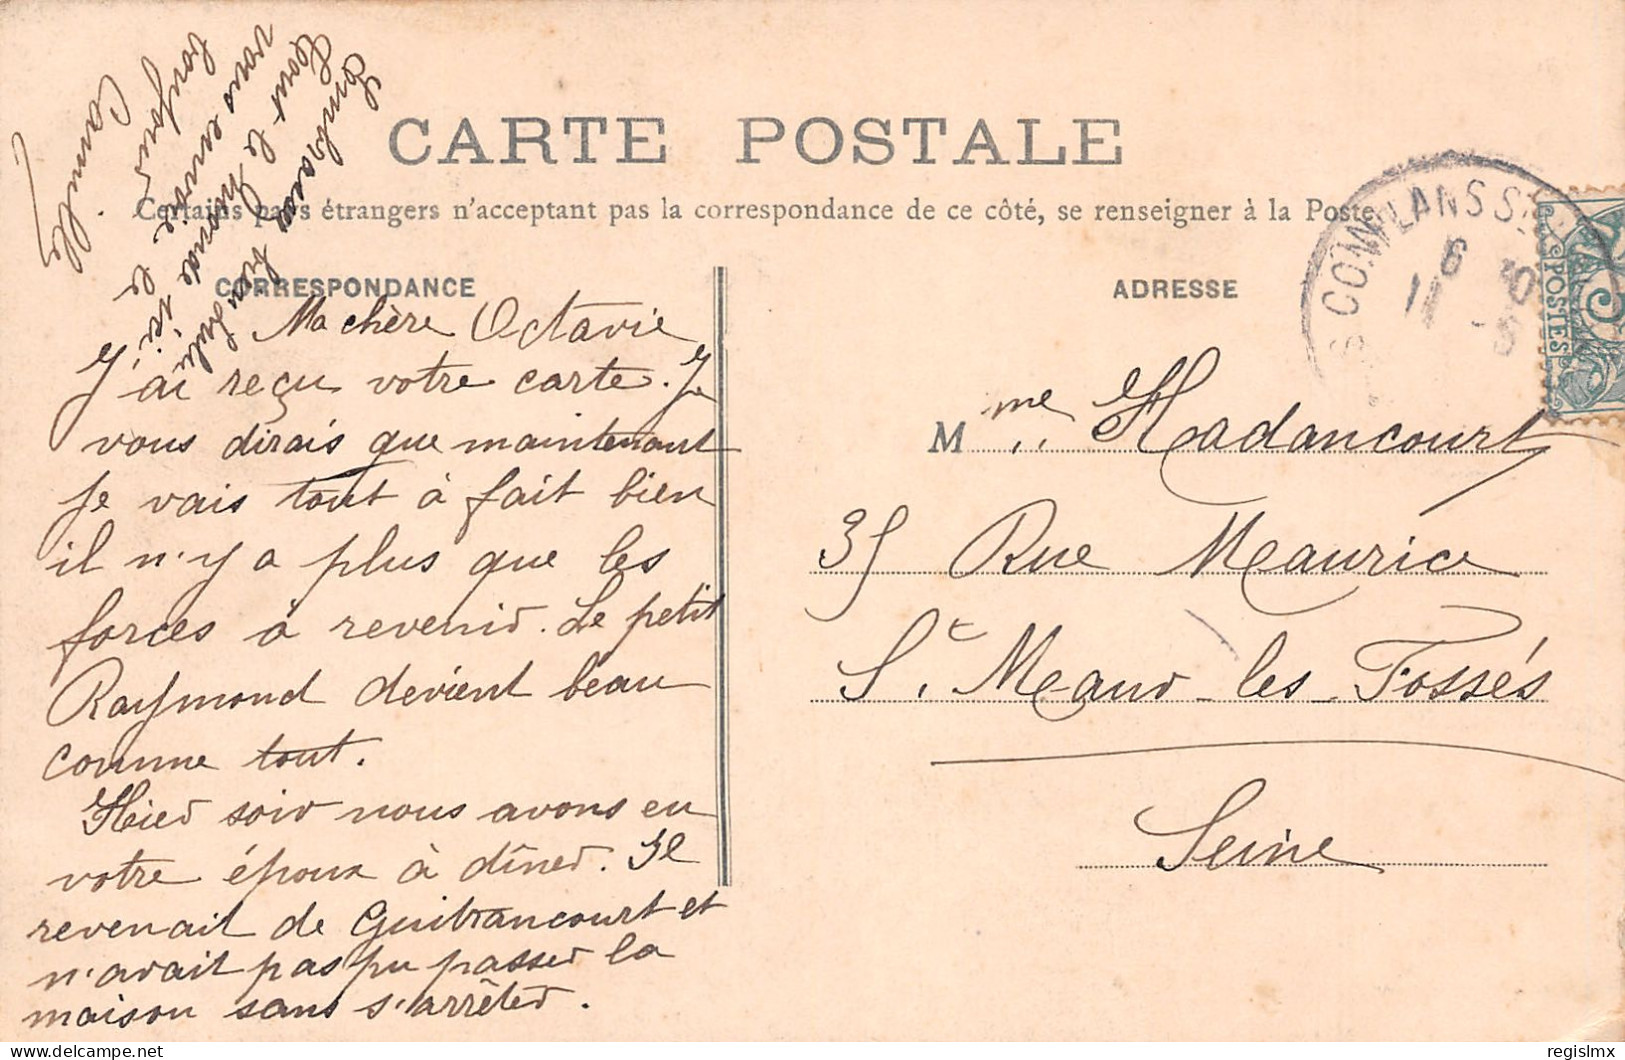 CARTE POSTALE
Certains pays étrangers n'acceptent pas la correspondance de ce côté, se renseigner à la Poste
CORRESPONDANCE
Ma chère Octavie
J'ai reçu votre carte. Je
vous dirais que maintenant
je vais tout à fait bien
il n'y a plus que les
forces à revenir. Le petit
Raymond devient beau
comme tout.
Hier soir nous avons eu
votre époux à dîner. Il
revenait de Guitrancourt et
n'avait pas pu passer la
maison sans s'arrêter.
Embrassez
tout le monde ici
vous envie le
bonjour
Camille
ADRESSE
CONFLANS S
6 10
11 - 5
POSTES
5
Mme Hadancourt
35 Rue Maurice
St. Maur-les-Fossés
Seine
regislmx
delcampe.net